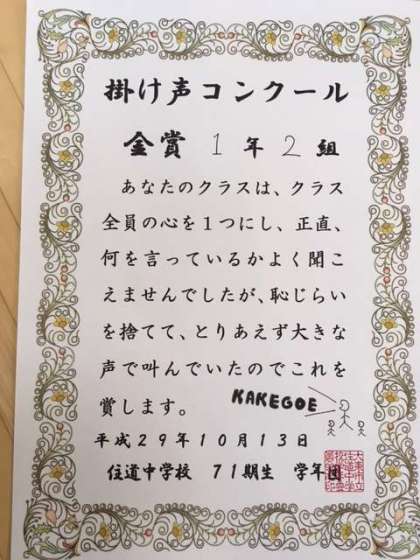 掛け声コンクール
金賞 1年2組
あなたのクラスは、クラス
全員の心を1つにし、正直、
何を言っているかよく聞こ
えませんでしたが、恥じらい
を捨てて、とりあえず大きな
声で叫んでいたのでこれを
賞します。
KAKEGOE
平成29年10月13日
住道中学校 71期生 学年団